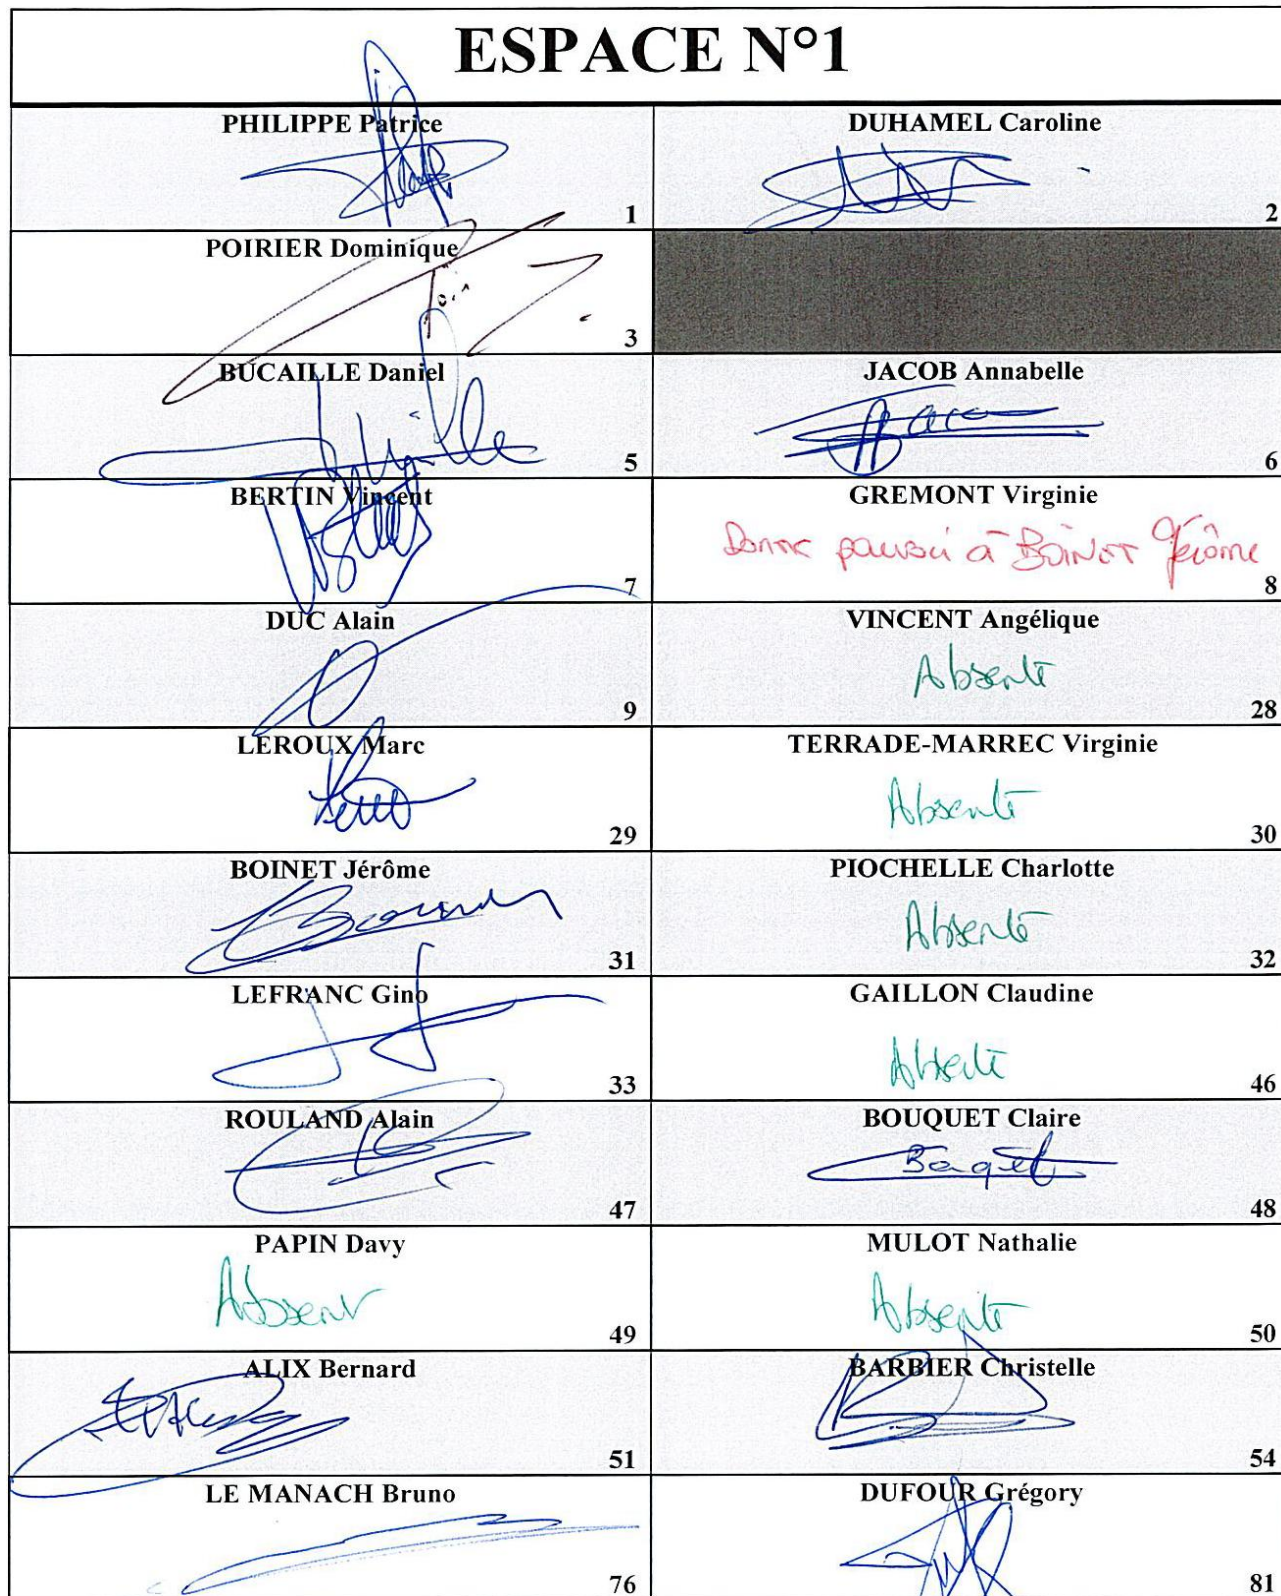 ESPACE N°1
PHILIPPE Patrice
1
DUHAMEL Caroline
2
POIRIER Dominique
3
BUCAILLE Daniel
5
JACOB Annabelle
6
BERTIN Vincent
7
GREMONT Virginie
Donne pouvoir à BOINET Jérôme
8
DUC Alain
9
VINCENT Angélique
Absente
28
LEROUX Marc
29
TERRADE-MARREC Virginie
Absente
30
BOINET Jérôme
31
PIOCHELLE Charlotte
Absente
32
LEFRANC Gino
33
GAILLON Claudine
Absente
46
ROULAND Alain
47
BOUQUET Claire
48
PAPIN Davy
Absent
49
MULOT Nathalie
Absente
50
ALIX Bernard
51
BARBIER Christelle
54
LE MANACH Bruno
76
DUFOUR Grégory
81